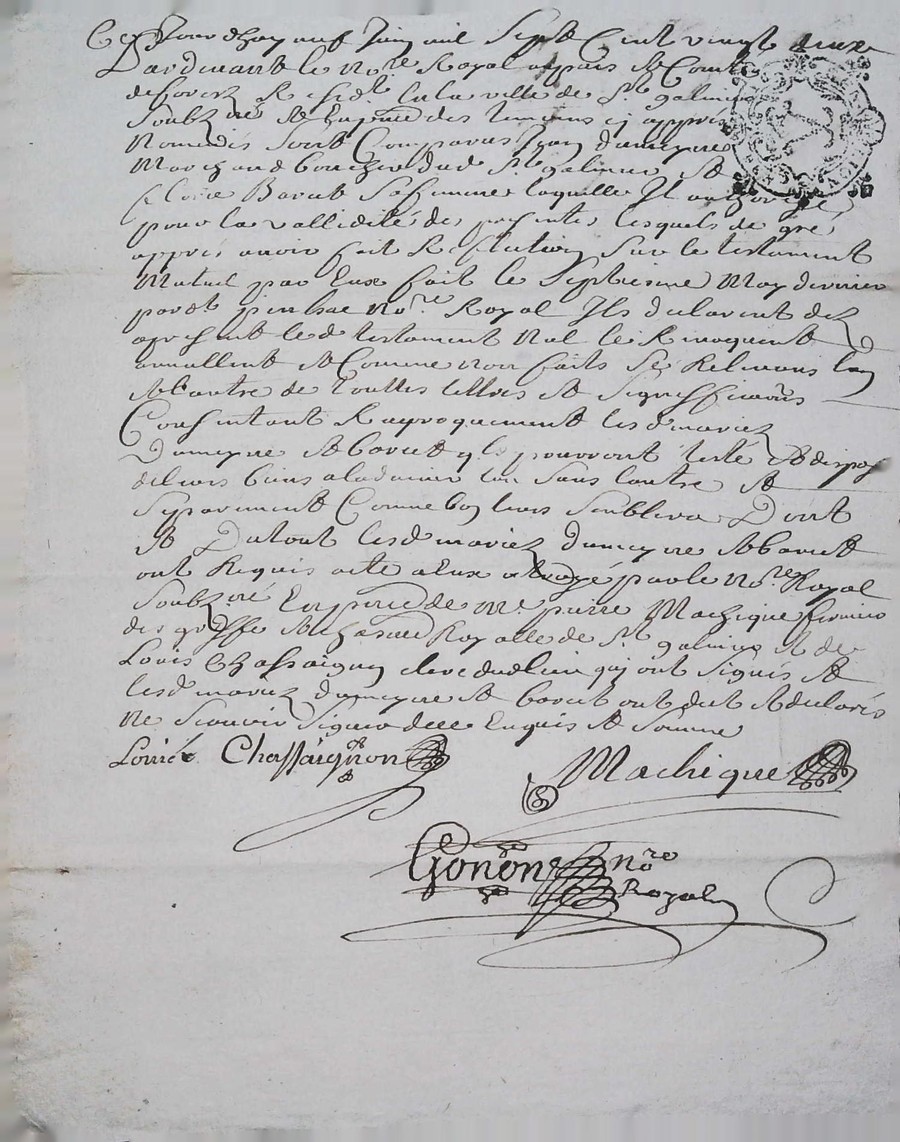 Ce Jourdhuy neuf Juin mil Sept Cent vingt deux
Pardevant le no.re Royal au pais & Comté
de forez Residt. en la ville de St. galmier
Soubz.né & En pnce des temoins cy appres
Nommés Sont Comparus Jean dumeyne
Marchand boucher dud. St. galmier &
Claire Barut Sa femme laquelle Il authorise
pour la vallidité des presentes lesquels de gré
apprés avoir fait Reflection Sur le testament
Mutuel par Eux fait le Septiesme May dernier
par dt no.re Royal Ils declarent dez
apresent led. testament Nul le Revoquent
annullent & Comme non fait Se Relevans l'un
& l'autre de touttes lettres & Significaons
Consentant Reciproquement lesd. mariez
Dumeyne & barut qls pourront testé & dispoz
de leurs biens aladvenir l'un Sans l'autre &
Separement Comme bon leurs Semblera Dont
& Du tout lesd. mariez dumeyne & barut
ont Requis acte a Eux octroyé par le no.re Royal
Soubz.né En pnce de Me. pierre Machique fermier
des greffe & chasteau Royalle de St. galmier & de
Louis Chassaignon clerc dud. lieu qui ont Signés &
lesd. mariez dumeyne & barut ont dit & declarés
ne Scavoir Signer de ce Enquis & Sommé
Louis Chassaignon
Machique
Gonon n.re
Royal